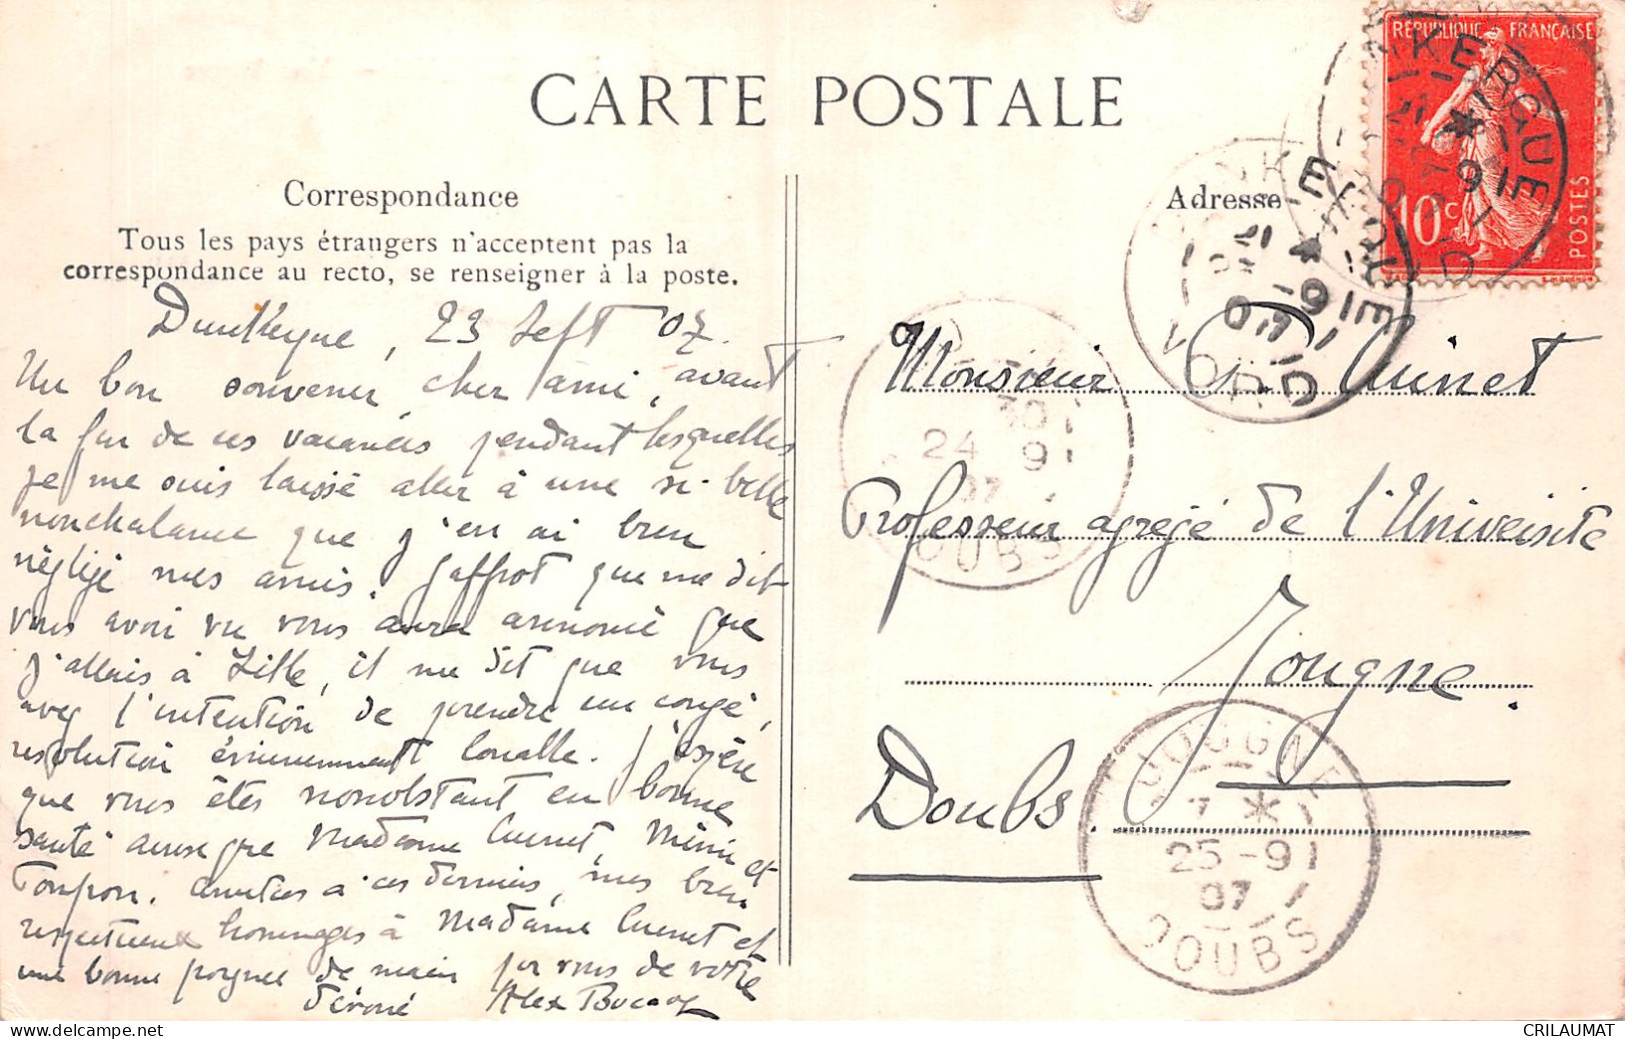 CARTE POSTALE
Correspondance
Tous les pays étrangers n'acceptent pas la
correspondance au recto, se renseigner à la poste.
Dunkerque, 23 Sept 07.
Un bon souvenir, cher ami, avant
la fin de ces vacances pendant lesquelles
je me suis laissé aller à une si belle
nonchalance que j'en ai bien
négligé mes amis. Jaffrot que me dit
vous avoir vu vous aura annoncé que
j'allais à Lille, il me dit que vous
avez l'intention de prendre un congé,
résolution éminemment louable. J'espère
que vous êtes nonobstant en bonne
santé ainsi que Madame Cuinet, Mimi et
Toupon. Amitiés à ces derniers, mes bien
respectueux hommages à Madame Cuinet et
une bonne poignée de main pour vous de votre
dévoué Alex
Adresse
Monsieur Cuinet
Professeur agrégé de l'Université
Jougne.
Doubs.
RÉPUBLIQUE FRANÇAISE
10c
POSTES
DUNKERQUE
NORD
24 9
07
DOUBS
JOUGNE
7 *
25 -9
07
DOUBS
CRILAUMAT